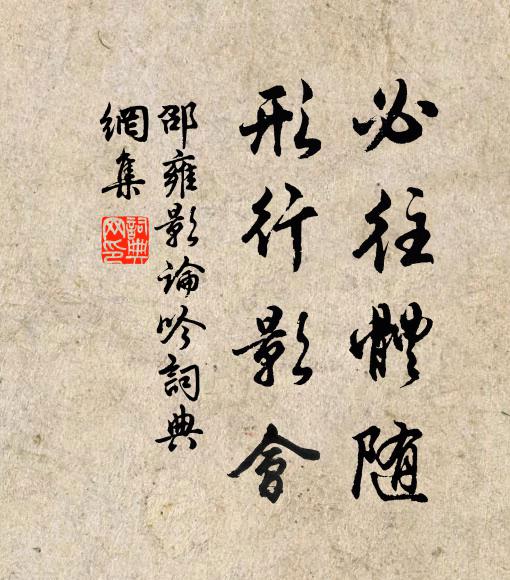 必往體随
形行影會
邵雍影論吟詞典
網集
詞典
网印